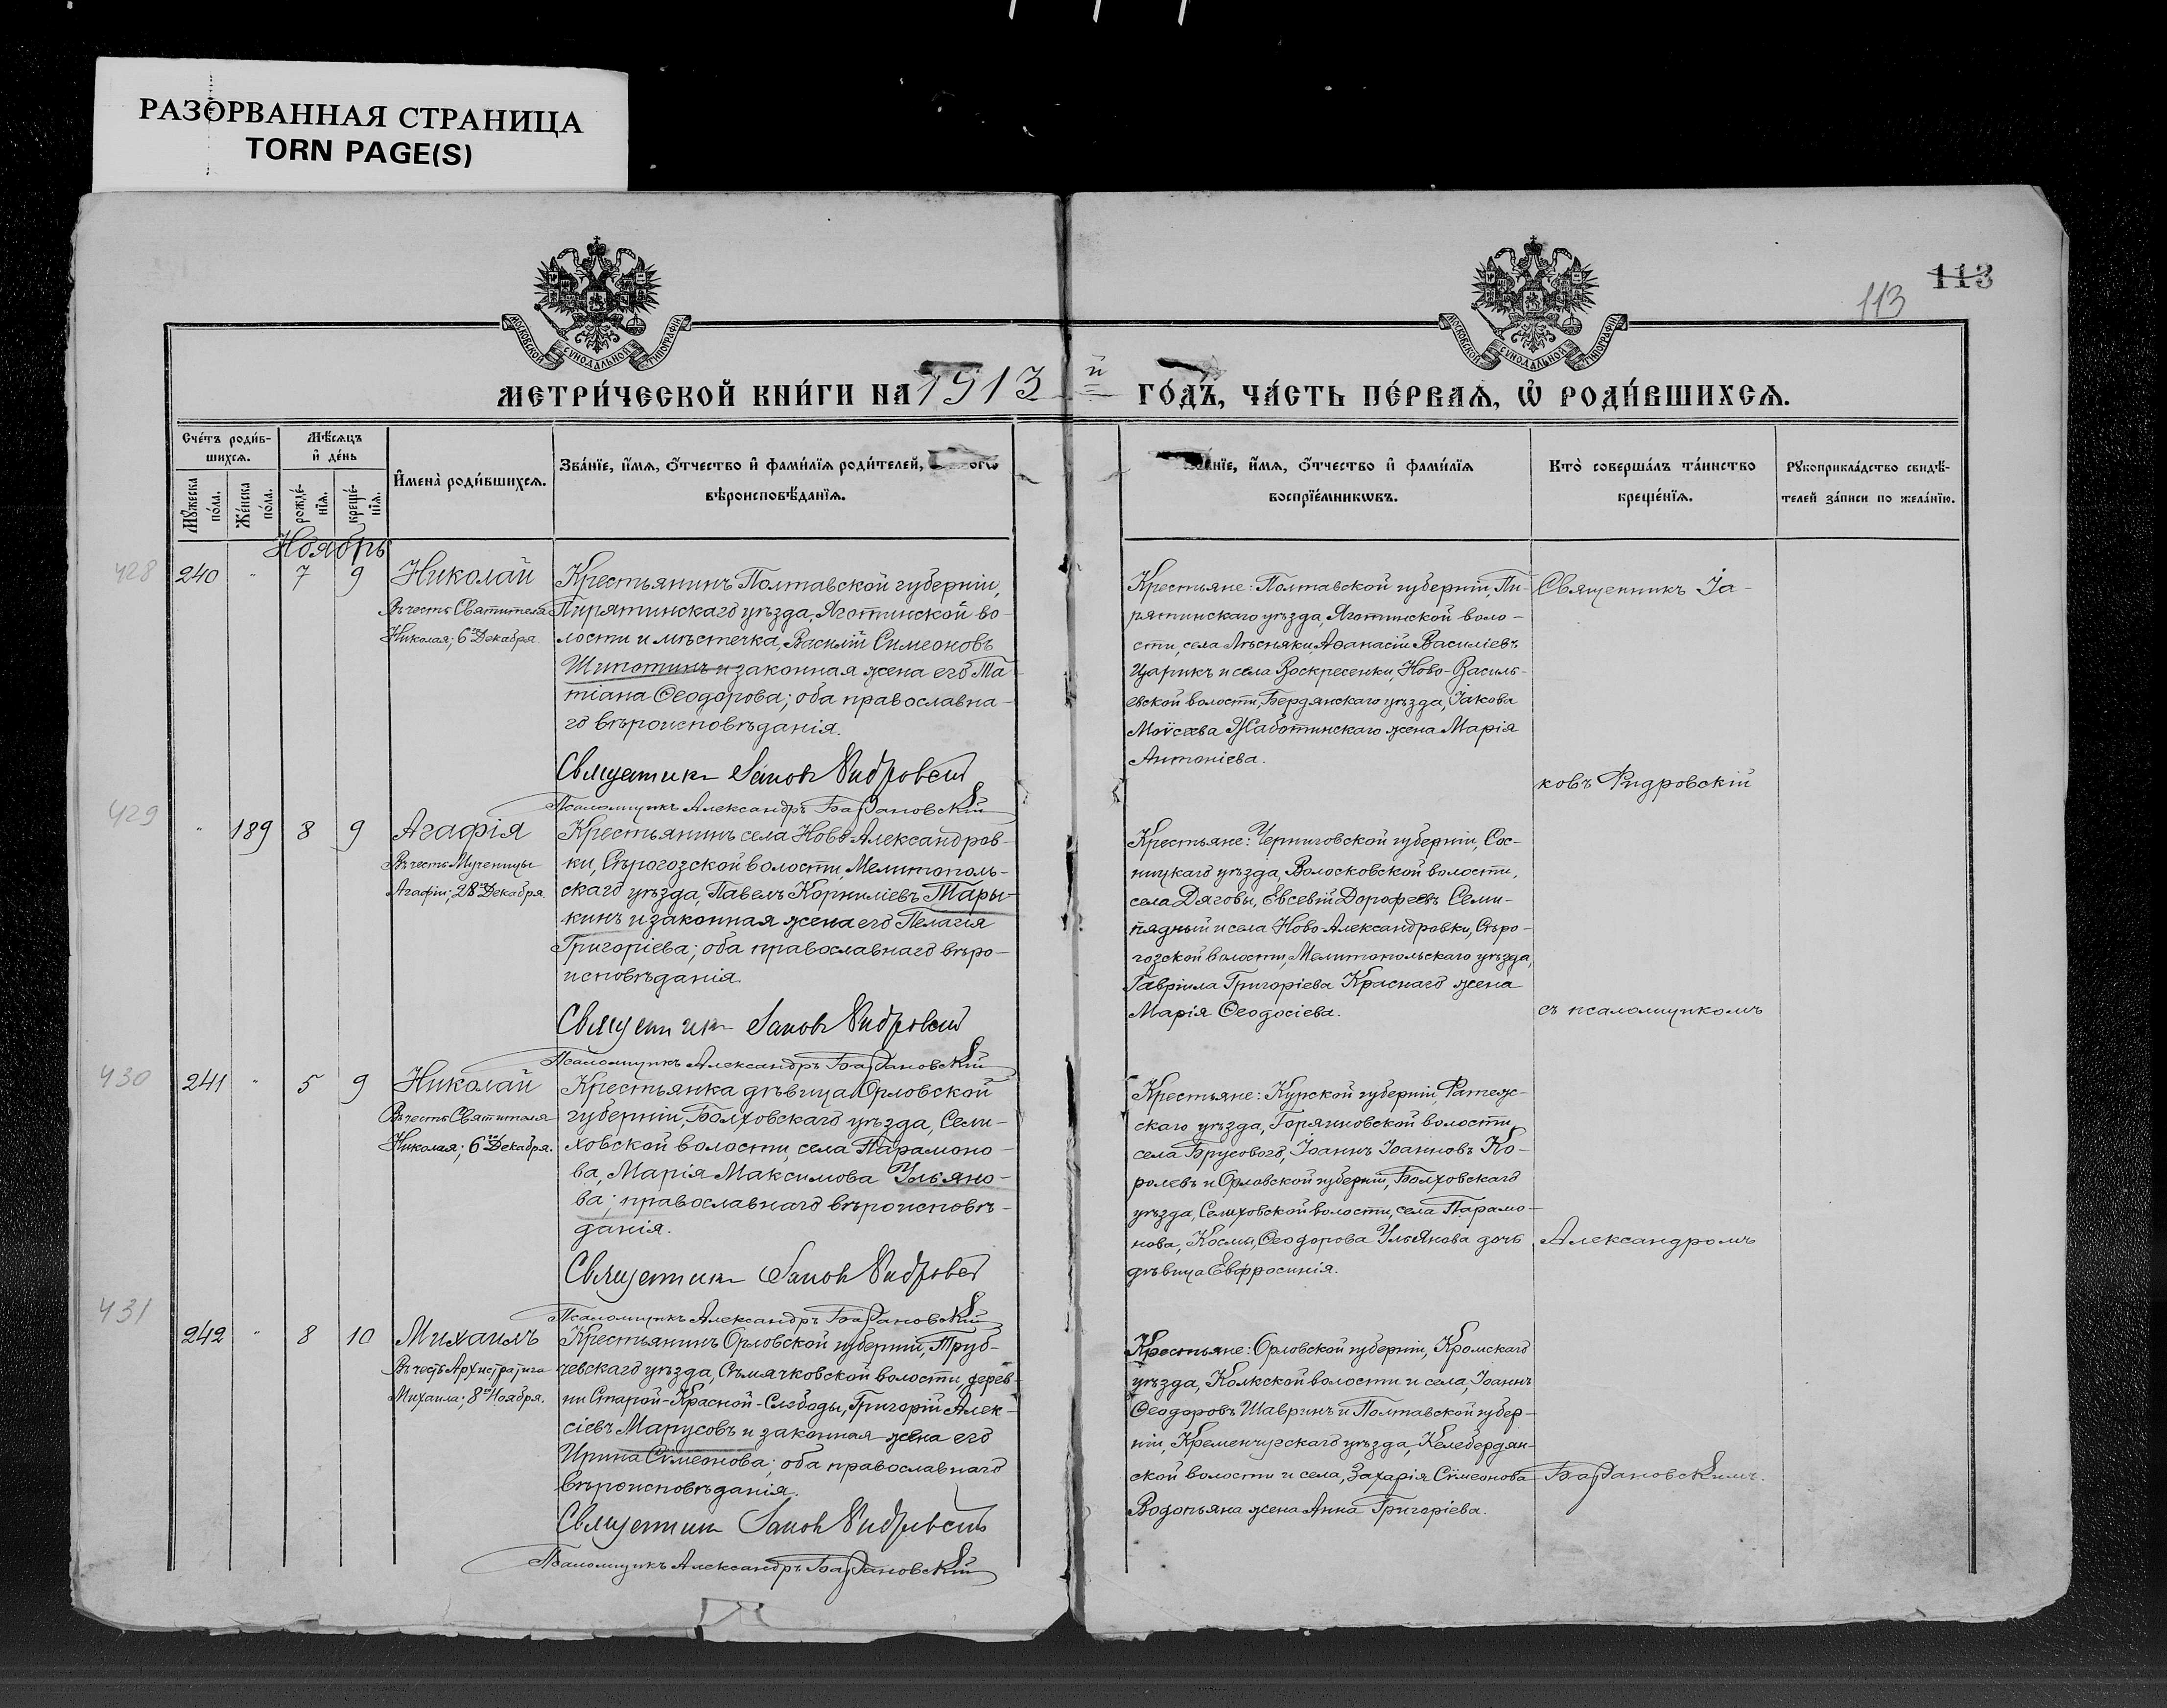 РАЗОРВАННАЯ СТРАНИЦА
TORN PAGE(S)
113
113
МОСКОВСКОЙ СѴНОДАЛЬНОЙ ТИПОГРАФІИ
МОСКОВСКОЙ СѴНОДАЛЬНОЙ ТИПОГРАФІИ
МЕТРИ́ЧЕСКОЙ КНИ́ГИ НА 1913 й ГО́ДЪ, ЧА́СТЬ ПЕ́РВАЯ, Ѡ҆ РОДИ́ВШИХСЯ.
Сче́тъ роди́в-
шихся.
Мѣ́сяцъ
и҆ де́нь
Мꙋ́жеска по́ла.
Же́нска по́ла.
рожде́-
нїѧ.
креще́-
нїѧ.
И҆мена̀ роди́вшихся.
Зва́нїе, и҆́мя, ѻ҆́тчество и҆ фами́лїя роди́телей,
вѣроисповѣ́данїя.
и҆́мя, ѻ҆́тчество и҆ фами́лїя
воспрїе́мникѡвъ.
Кто̀ соверша́лъ та́инство
креще́нїя.
Рꙋкоприкла́дство свидѣ́-
телей за́писи по жела́нїю.
Ноябрь
428
240 " 7 9
Николай
Въ честь Святителя
Николая; 6го Декабря
Крестьянинъ Полтавской губерніи,
Пирятинскаго уѣзда, Яготинской во-
лости и мѣстечка, Василій Симеоновъ
Шипотинъ и законная жена его Та-
тіана Ѳеодорова; оба православна-
го вѣроисповѣданія.
Священникъ Іаковъ Фидровскій
Псаломщикъ Александръ Богдановскій
Крестьяне: Полтавской губерніи, Пи-
рятинскаго уѣзда, Яготинской воло-
сти, села Лѣсняки, Аѳанасій Василіевъ
Царикъ и села Воскресенки, Ново-Василь-
евской волости, Бердянскаго уѣзда, Іакова
Моѵсеева Жаботинскаго жена Марія
Антоніева.
Священникъ Іа-
ковъ Фидровскій
429
" 189 8 9
Агафія
Въ честь Мученицы
Агафіи; 28го Декабря
Крестьянинъ села Ново Александров-
ки, Сѣрогозской волости, Мелитополь-
скаго уѣзда, Павелъ Корниліевъ Тары-
кинъ и законная жена его Пелагія
Григоріева; оба православнаго вѣро-
исповѣданія.
Священникъ Іаковъ Фидровскій
Псаломщикъ Александръ Богдановскій
Крестьяне: Черниговской губерніи, Сос-
ницкаго уѣзда, Волосковской волости,
села Дяговы, Евсевій Дорофеевъ Семи-
пядный и села Ново Александровки, Сѣро-
гозской волости, Мелитопольскаго уѣзда,
Гавріила Григоріева Краснаго жена
Марія Ѳеодосіева.
съ псаломщикомъ
430
241 " 5 9
Николай
Въ честь Святителя
Николая; 6го Декабря.
Крестьянка дѣвица Орловской
губерніи, Болховскаго уѣзда, Сели-
ховской волости, села Парамоно-
ва, Марія Максимова Ульяно-
ва; православнаго вѣроисповѣ-
данія.
Священникъ Іаковъ Фидровскій
Псаломщикъ Александръ Богдановскій
Крестьяне: Курской губерніи, Фатеж-
скаго уѣзда, Горяиновской волости,
села Брусового, Іоаннъ Іоанновъ Ко-
ролевъ и Орловской губерніи, Болховскаго
уѣзда, Селиховской волости, села Парамо-
нова, Космы Ѳеодорова Ульянова дочь
дѣвица Евфросинія.
Александромъ
431
242 " 8 10
Михаилъ
Въ честь Архистратига
Михаила; 8го Ноября.
Крестьянинъ Орловской губерніи, Труб-
чевскаго уѣзда, Сѣмячковской волости, дерев-
ни Старой-Красной-Слободы, Григорій Алек-
сіевъ Марусовъ и законная жена его
Ирина Симеонова; оба православнаго
вѣроисповѣданія.
Священникъ Іаковъ Фидровскій
Псаломщикъ Александръ Богдановскій
Крестьяне: Орловской губерніи, Кромскаго
уѣзда, Колкской волости и села, Іоаннъ
Ѳеодоровъ Шавринъ и Полтавской губер-
ніи, Кременчугскаго уѣзда, Келебердян-
ской волости и села, Захарія Симеонова
Водопьяна жена Анна Григоріева.
Богдановскимъ.